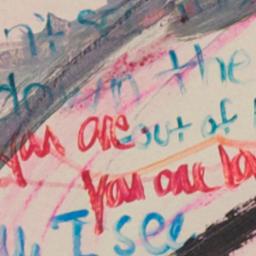 n't s
down the
You are out of
You are lo
I see